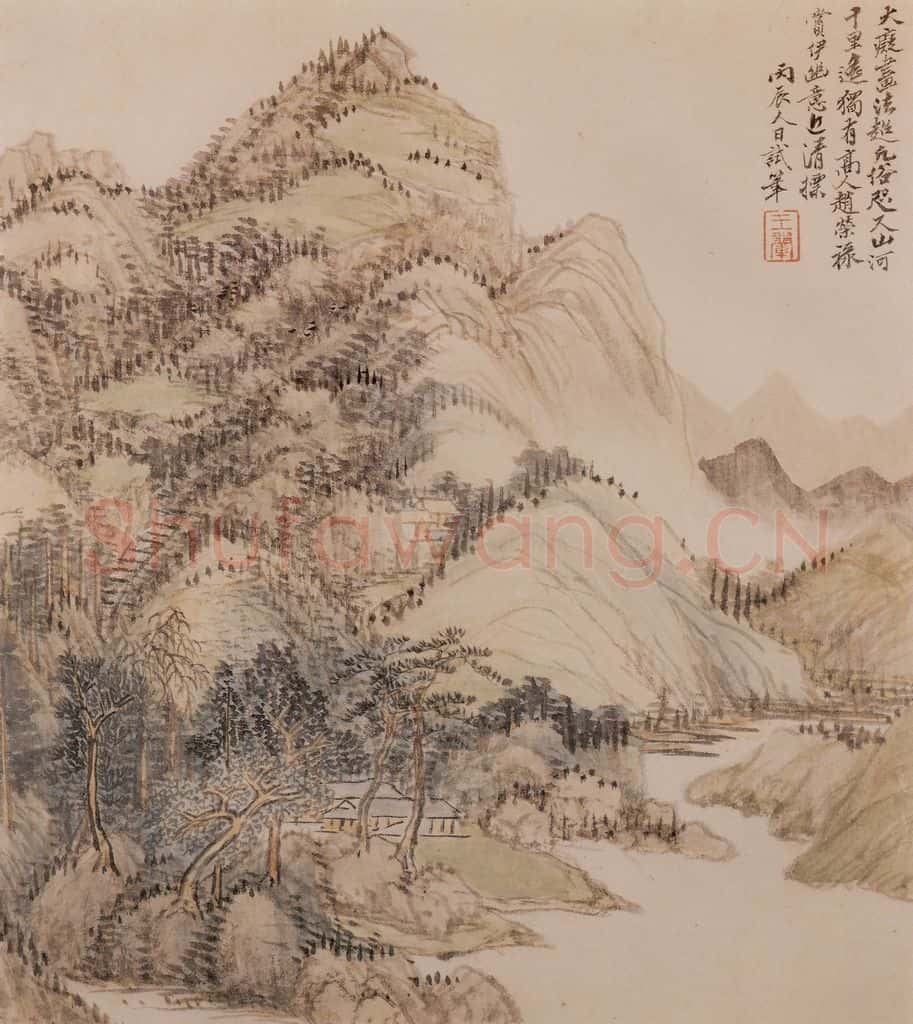 大癡畫法超凡俗咫尺山河
千里遙獨有高人趙榮祿
賞伊幽意近清標
丙辰人日試筆
Shufawang.CN